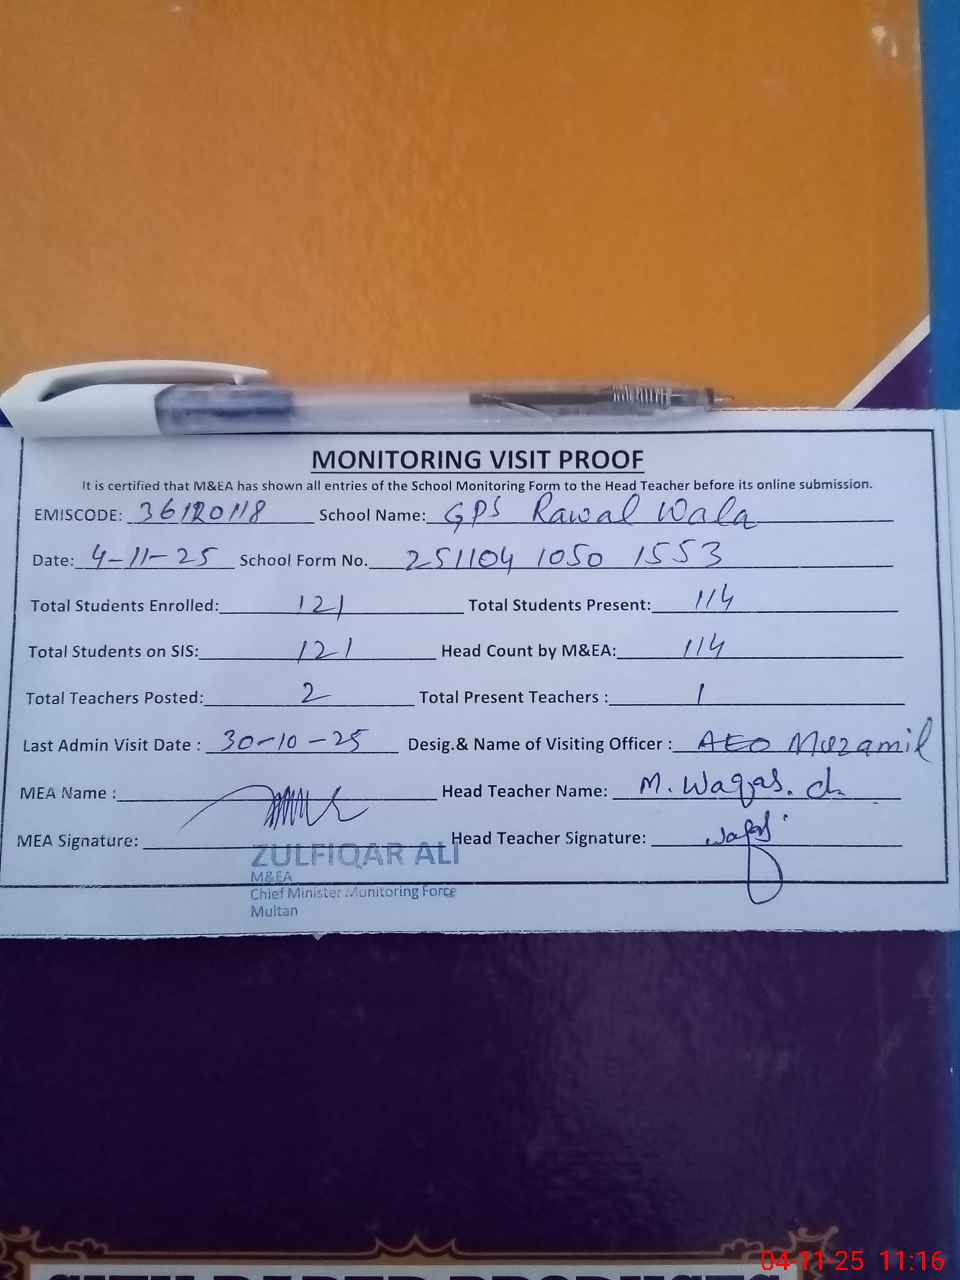 MONITORING VISIT PROOF
It is certified that M&EA has shown all entries of the School Monitoring Form to the Head Teacher before its online submission.
EMISCODE: 36120118 School Name: GPS Rawal Wala
Date: 4-11-25 School Form No. 251104 1050 1553
Total Students Enrolled: 121 Total Students Present: 114
Total Students on SIS: 121 Head Count by M&EA: 114
Total Teachers Posted: 2 Total Present Teachers : 1
Last Admin Visit Date : 30-10-25 Desig.& Name of Visiting Officer : AEO Muzamil
MEA Name : Head Teacher Name: M. Waqas.
MEA Signature: Head Teacher Signature:
ZULFIQAR ALI
M&EA
Chief Minister Monitoring Force
Multan
04-11-25 11:16